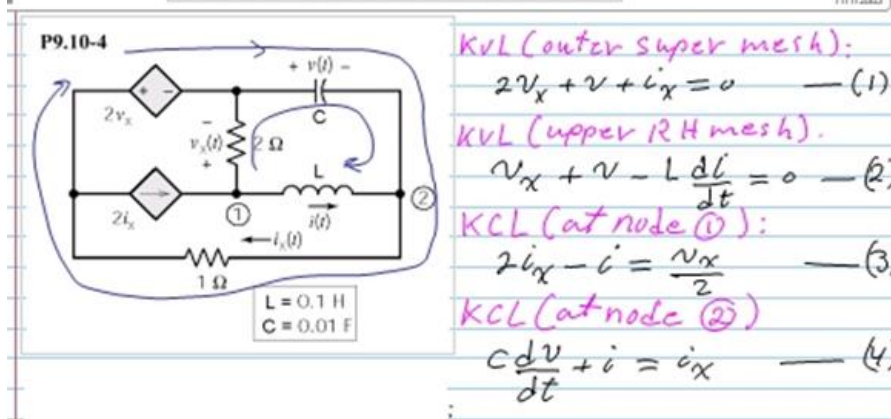 P9.10-4
+ v(t) −
C
+ −
2vₓ
−
vₓ(t)
+
2 Ω
L
i(t)
①
②
2iₓ
iₓ(t)
1 Ω
L = 0.1 H
C = 0.01 F
KVL (outer super mesh):
2Vₓ + v + iₓ = 0 — (1)
KVL (upper RH mesh).
Vₓ + v − L di/dt = 0 — (2)
KCL (at node ①):
2iₓ − i = vₓ/2 — (3)
KCL (at node ②)
C dv/dt + i = iₓ — (4)